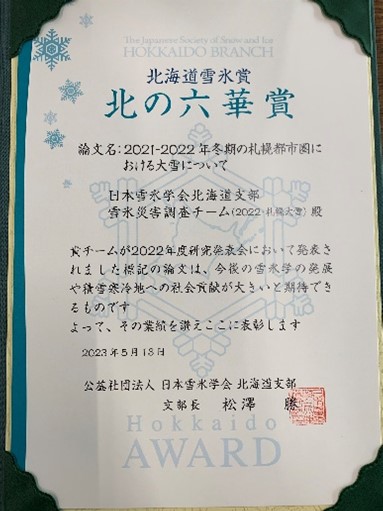 The Japanese Society of Snow and Ice
HOKKAIDO BRANCH
北海道雪氷賞
北の六華賞
論文名：2021-2022年冬期の札幌都市圏に
おける大雪について
日本雪氷学会北海道支部
雪氷災害調査チーム(2022 札幌大雪) 殿
貴チームが2022年度研究発表会において発表さ
れました標記の論文は、今後の雪氷学の発展
や積雪寒冷地への社会貢献が大きいと期待でき
るものです
よって、その業績を讃えここに表彰します
2023年5月13日
公益社団法人 日本雪氷学会 北海道支部
支部長 松澤 勝
Hokkaido
AWARD